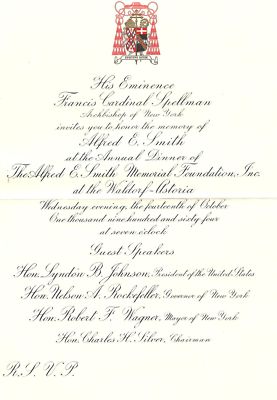 His Eminence
Francis Cardinal Spellman
Archbishop of New York
invites you to honor the memory of
Alfred E. Smith
at the Annual Dinner of
The Alfred E. Smith Memorial Foundation, Inc.
at the Waldorf-Astoria
Wednesday evening, the fourteenth of October
One thousand nine hundred and sixty four
at seven o'clock
Guest Speakers
Hon. Lyndon B. Johnson, President of the United States
Hon. Nelson A. Rockefeller, Governor of New York
Hon. Robert F. Wagner, Mayor of New York
Hon. Charles H. Silver, Chairman
R. S. V. P.